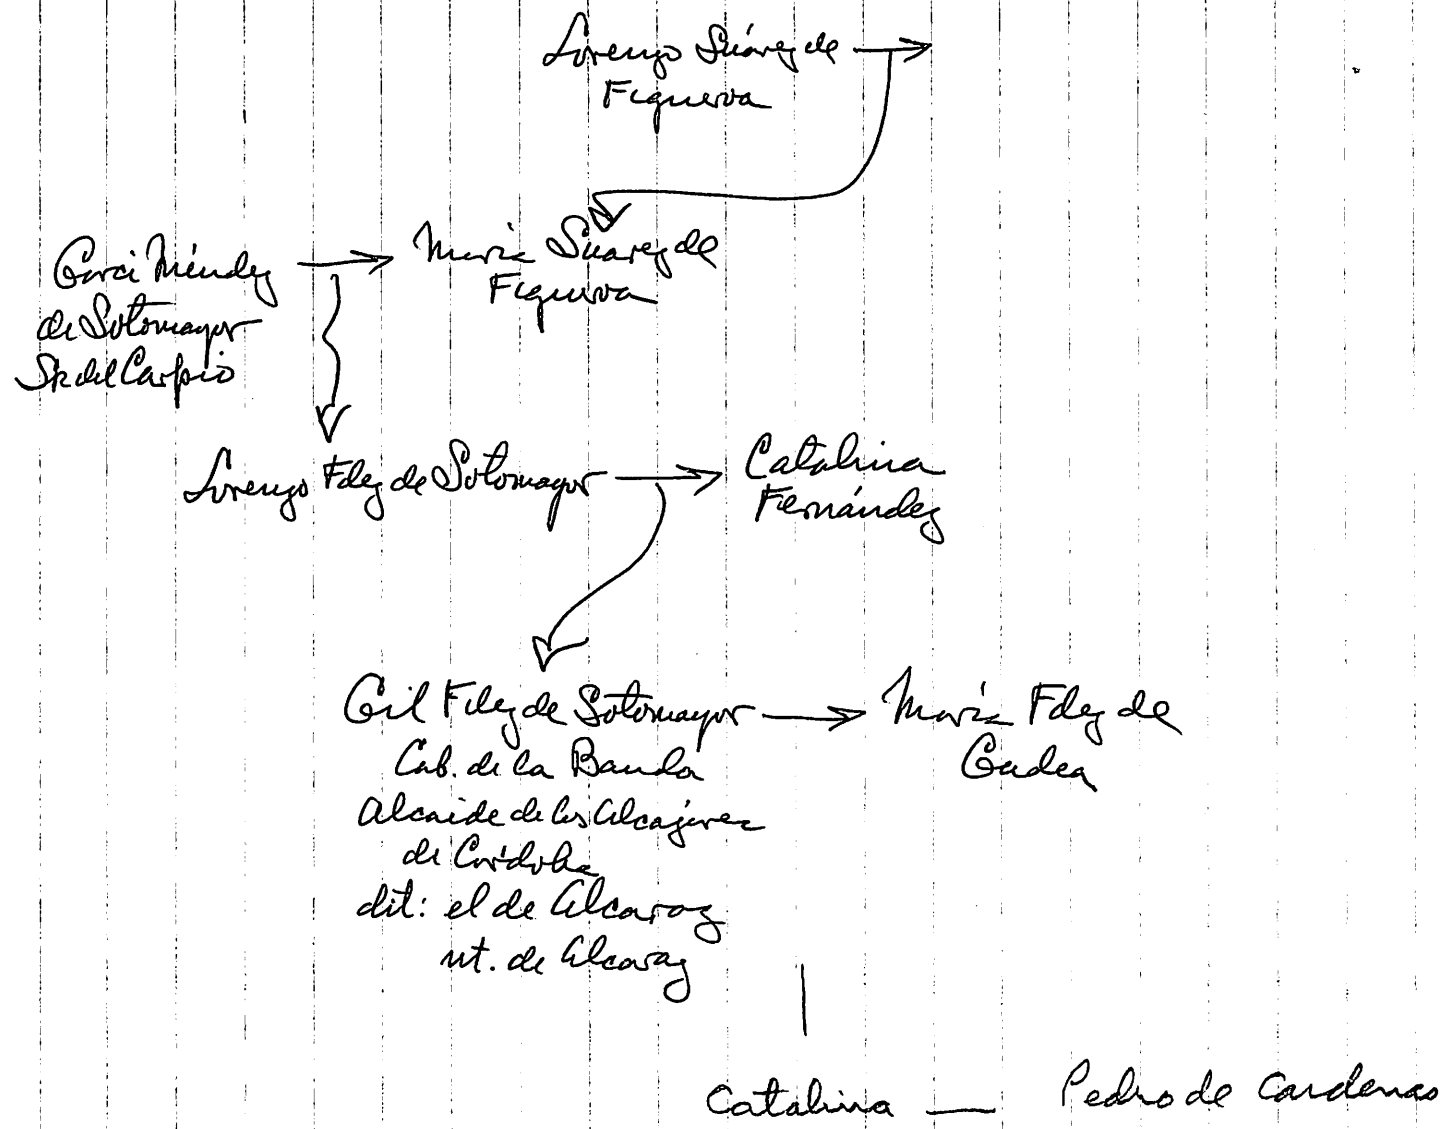 Lorenzo Suárez de
Figueroa
Garci Méndez
de Sotomayor
Sr del Carpio
María Suarez de
Figueroa
Lorenzo Fdez de Sotomayor
Catalina
Fernández
Gil Fdez de Sotomayor
Cab. de la Banda
Alcaide de los Alcázares
de Córdoba
dit: el de Alcaraz
nt. de Alcaraz
María Fdez de
Gudea
Catalina
Pedro de Cardenas